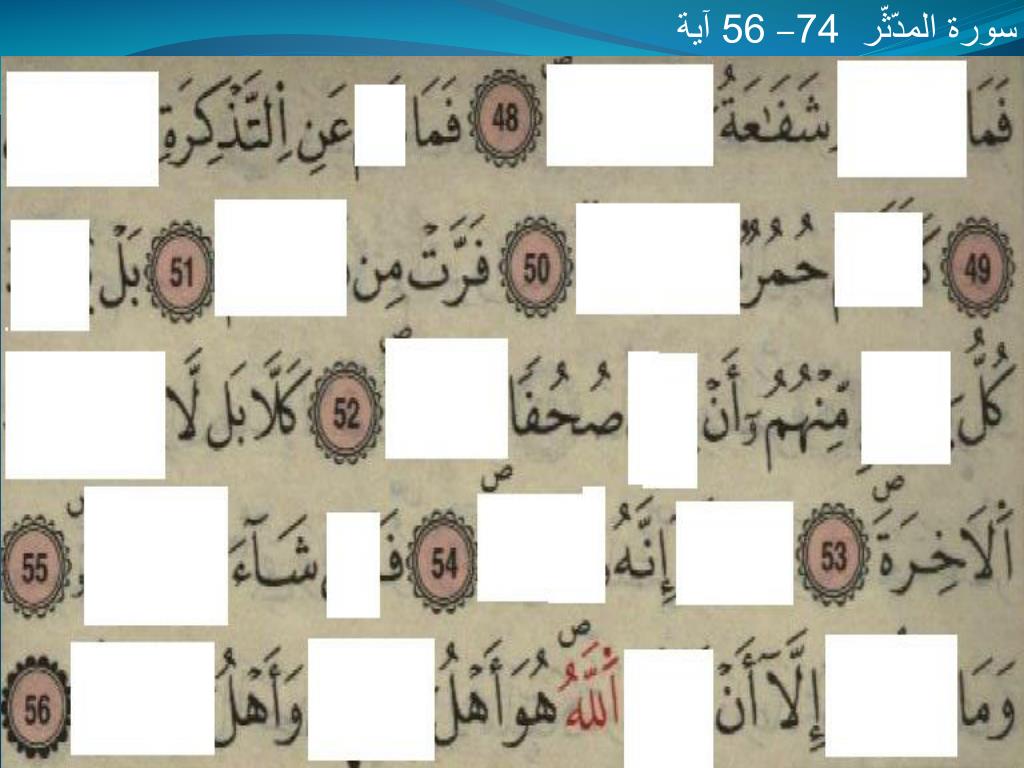 سورة المدّثّر 74– 56 آية
فَمَا شَفَٰعَةُ 48 فَمَا عَنِ اِ۬لتَّذْكِرَةِ
49 حُمُرٞ 50 فَرَّتْ مِن 51 بَلْ
كُلُّ مِّنْهُمُۥٓ أَنْ صُحُفٗا 52 كَلَّا بَل لَّا
اَ۬لَاخِرَةَۖ 53 إِنَّهُۥ 54 شَآءَ 55
وَمَا إِلَّآ أَنْ اَ۬للَّهُۖ هُوَ أَهْلُ وَأَهْلُ 56